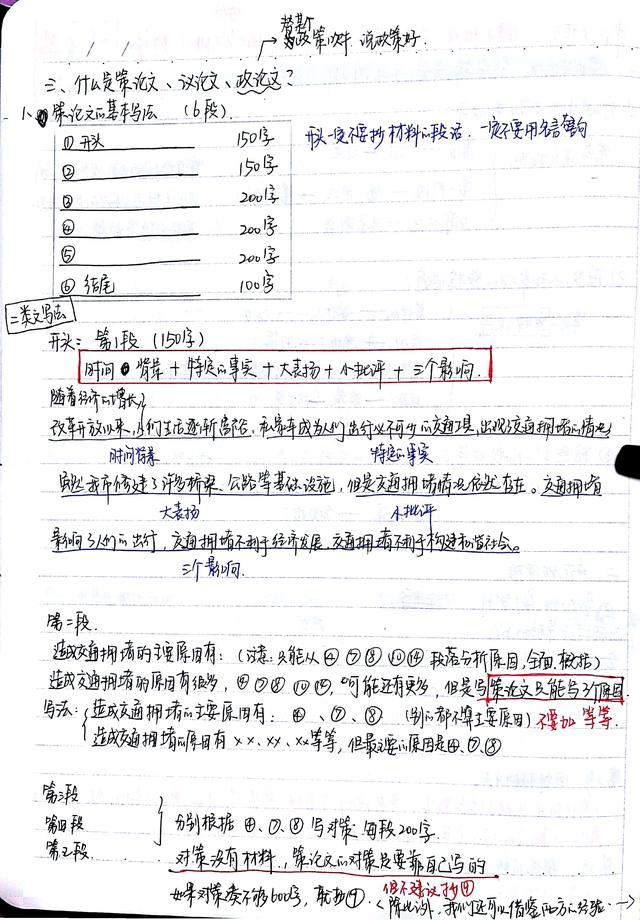 替某个
政策吹牛 说政策好.
三、什么是策论文、议论文、政论文?
1、策论文的基本写法 (6段).
① 开头 150字
② 150字
③ 200字
④ 200字
⑤ 200字
⑥ 结尾 100字
开头一定不要抄材料的段话. 一定不要用名言警句
二类文写法
开头: 第1段 (150字)
时间 背景 + 特定的事实 + 大表扬 + 小批评 + 三个影响.
随着经济的增长,
改革开放以来,人们生活逐渐富裕,轿车成为人们出行必不可少的交通工具,出现了交通拥堵的情况
时间背景 特定的事实
虽然我市修建了许多桥梁、公路等基础设施,但是交通拥堵情况依然存在。交通拥堵
大表扬 小批评
影响了人们的出行,交通拥堵不利于经济发展,交通拥堵不利于构建和谐社会。
三个影响.
第二段.
造成交通拥堵的主要原因有: (注意:只能从④⑦⑧⑩⑭段落分析原因,全面.概括)
造成交通拥堵的原因有很多,④⑦⑧⑩⑭,可能还有更多,但是写策论文只能写3个原因
写法: 造成交通拥堵的主要原因有: ④、⑦、⑧ (别的都不算主要原因) 不要加等等.
造成交通拥堵的原因有××、××、××等等,但最主要的原因是④、⑦、⑧
第三段
第四段
第五段
分别根据④、⑦、⑧写对策.每段200字.
对策没有材料,策论文的对策是要靠自己写的
但不建议抄⑨
如果对策凑不够600字,就抄⑨.
除此以外,我们还可以借鉴西方的经验.